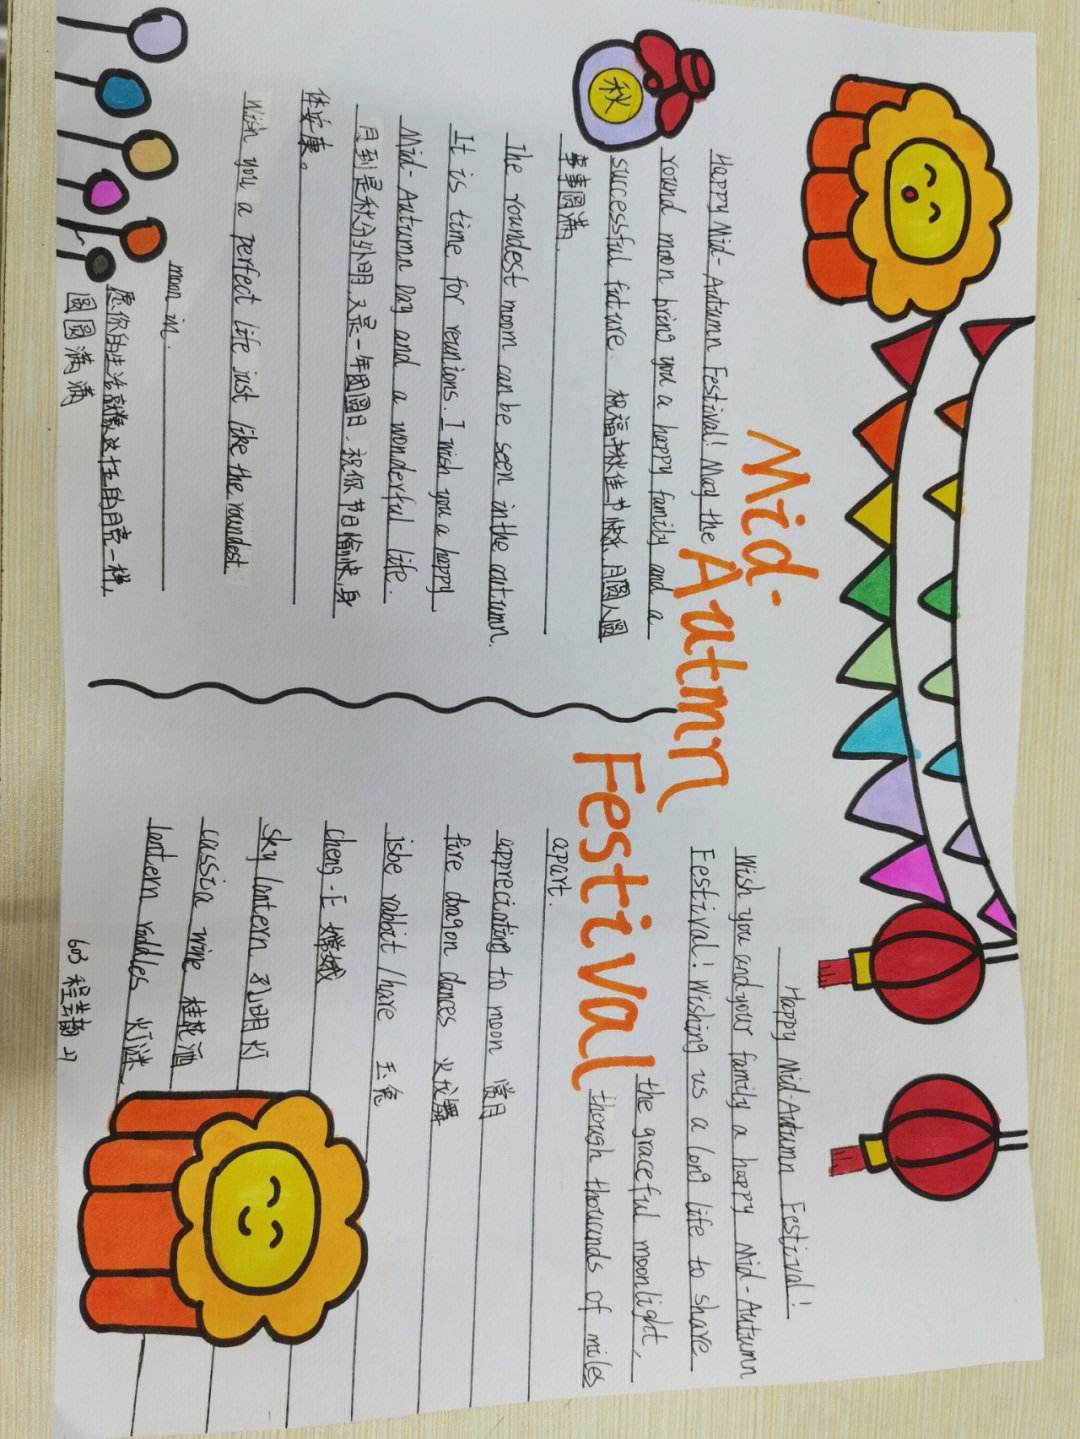 秋
Mid-
Autmn
Festival
Happy Mid-Autumn Festival! May the
round moon bring you a happy family and a
successful future. 祝福中秋佳节快乐月圆人圆
事事圆满.
The roundest moon can be seen in the autumn.
It is time for reunions. I wish you a happy
Mid-Autumn Day and a wonderful life.
月到是秋分外明,又是一年团圆日,祝你节日愉快,身
体安康。
Wish you a perfect life just like the roundest
moon in.
愿你的生活就像这十五的月亮一样,
圆圆满满
Happy Mid-Autumn Festival!
Wish you and your family a happy Mid-Autumn
Festival! Wishing us a long life to share
the graceful moonlight,
though thousands of miles
apart.
appreciating to moon 赏月
fire dragon dances 火龙舞
jsbe rabbit/hare 玉兔
cheng-E 嫦娥
sky lantern 孔明灯
cassia wine 桂花酒
lantern raddles 灯谜
603